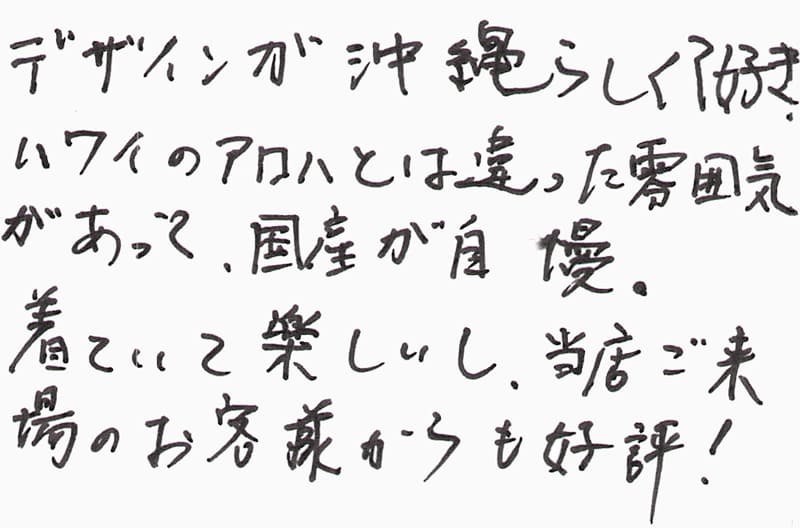 デザインが沖縄らしくて好き.
ハワイのアロハとは違った雰囲気
があって、国産が自慢。
着ていて楽しいし、当店ご来
場のお客様からも好評!